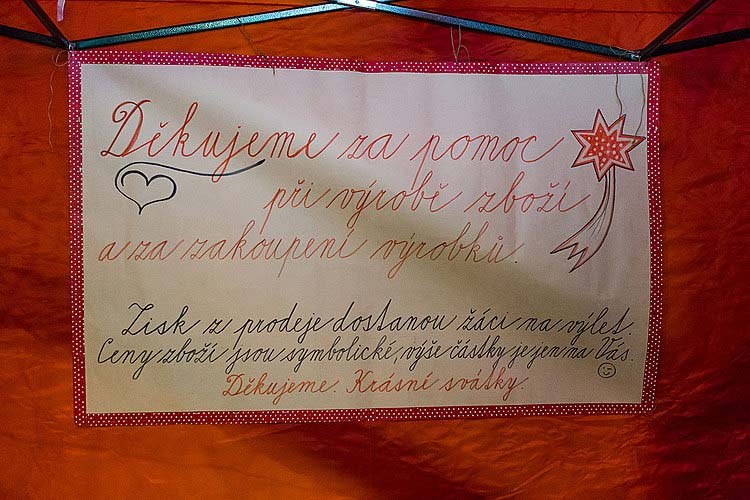 Děkujeme za pomoc
při výrobě zboží
a za zakoupení výrobků.
Zisk z prodeje dostanou žáci na výlet.
Ceny zboží jsou symbolické, výše částky je jen na Vás.
Děkujeme. Krásné svátky.